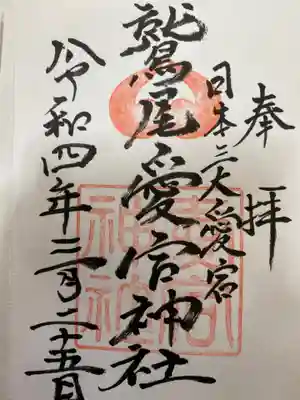 奉拝
日本三大愛宕
鷲尾愛宕神社
令和四年三月二十五日
愛宕
神社